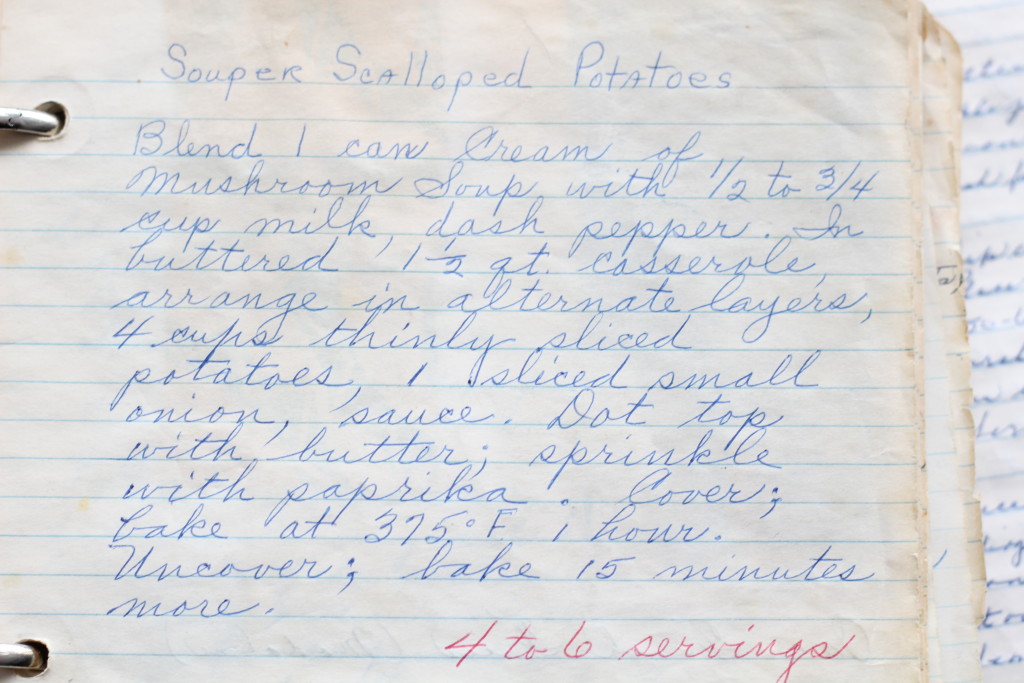 Souper Scalloped Potatoes
Blend 1 can Cream of
Mushroom Soup with 1/2 to 3/4
cup milk, dash pepper. In
buttered 1 1/2 qt. casserole
arrange in alternate layers,
4 cups thinly sliced
potatoes, 1 sliced small
onion, sauce. Dot top
with butter; sprinkle
with paprika. Cover;
bake at 375°F 1 hour.
Uncover; bake 15 minutes
more.
4 to 6 servings